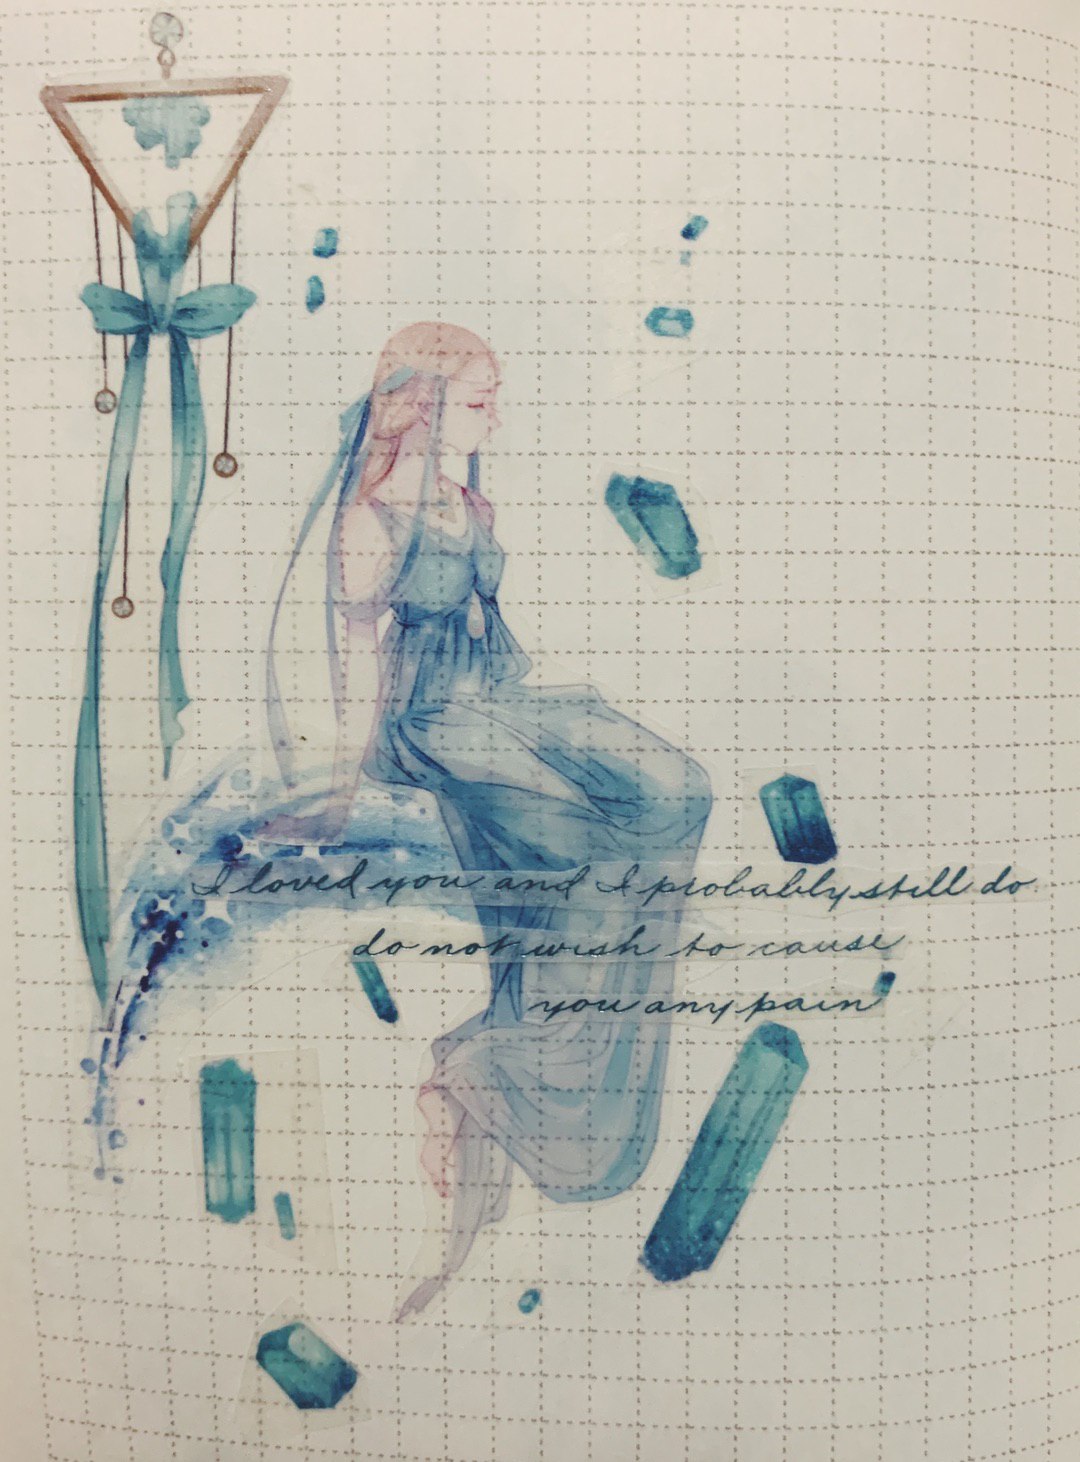 I loved you and I probably still do
do not wish to cause
you any pain